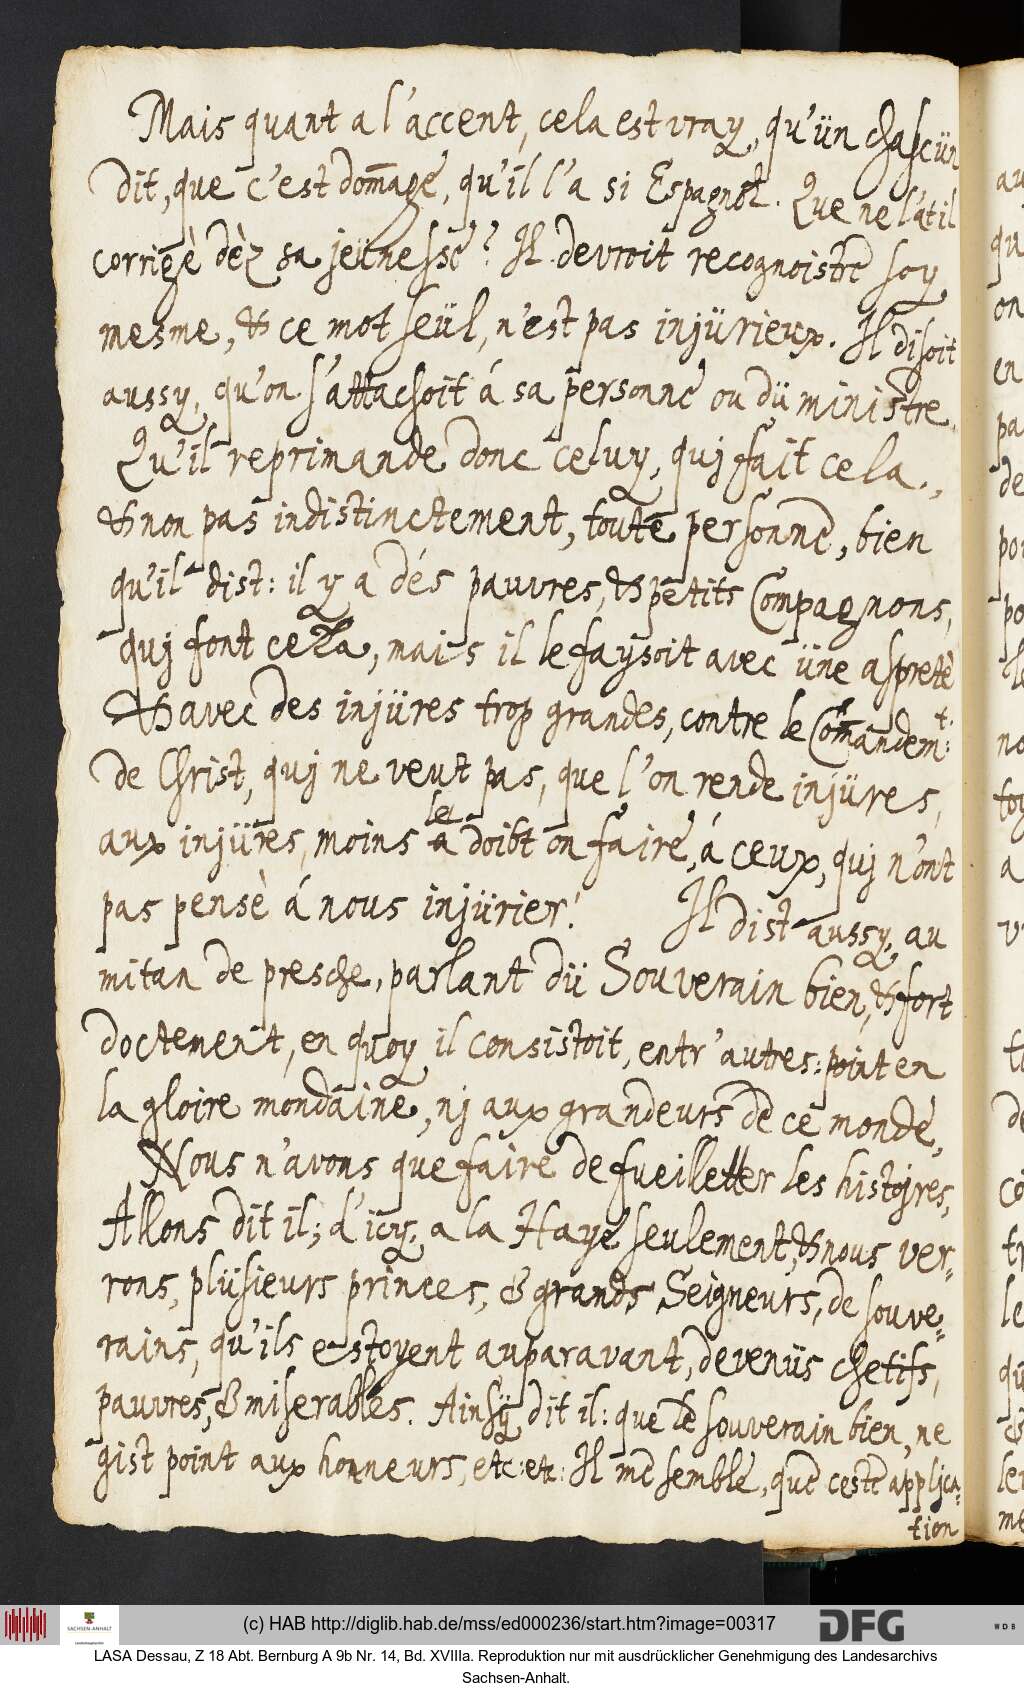 Mais quant a l'accent, cela est vray, qu'ün chascün
dit, que c'est dom̃age, qu'il l'a si Espagnol. Que ne l'at il
corrigè dèz sa jeünesse? Il devroit recognoistre soy
mesme, & ce mot seül, n'est pas injürieux. Il disoit
aussy, qu'on s'attachoit á sa personne ou dü ministre.
Qu'il reprimande donc celuy, quj fait cela.,
& non pas indistinctement, toute personne, bien
qu'il dist: il y a dés pauvres, & petits Compagnons,
quj font cella, mais il le faysoit avec üne aspretè
& avec des injüres trop grandes, contre le Com̃andem:t.
de Christ, quj ne veut pas, que l'on rende injüres,
aux injüres, moins le doibt on faire, á ceux, quj n'ont
pas pensè á nous injürier! Il dist aussy, au
mitan de presche, parlant dü Souverain bien, & fort
doctement, en quoy il consistoit, entr'autres: point en
la gloire mondaine, nj aux grandeurs de ce monde,
Nous n'avons que faire de fueilletter les histojres,
Allons dit il; d'icy, a la Haye seulement, & nous ver-
rons, plüsieurs princes, & grands Seigneurs, de souve-
rains, qu'ils estoyent auparavant, devenüs chetifs,
pauvres, & miserables. Ainsÿ dit il: que le souverain bien, ne
gist point aux honneurs, etc: etc: Il me semble, que ceste applica-
tion
(c) HAB http://diglib.hab.de/mss/ed000236/start.htm?image=00317
SACHSEN-ANHALT
DFG
WDB
LASA Dessau, Z 18 Abt. Bernburg A 9b Nr. 14, Bd. XVIIIa. Reproduktion nur mit ausdrücklicher Genehmigung des Landesarchivs
Sachsen-Anhalt.